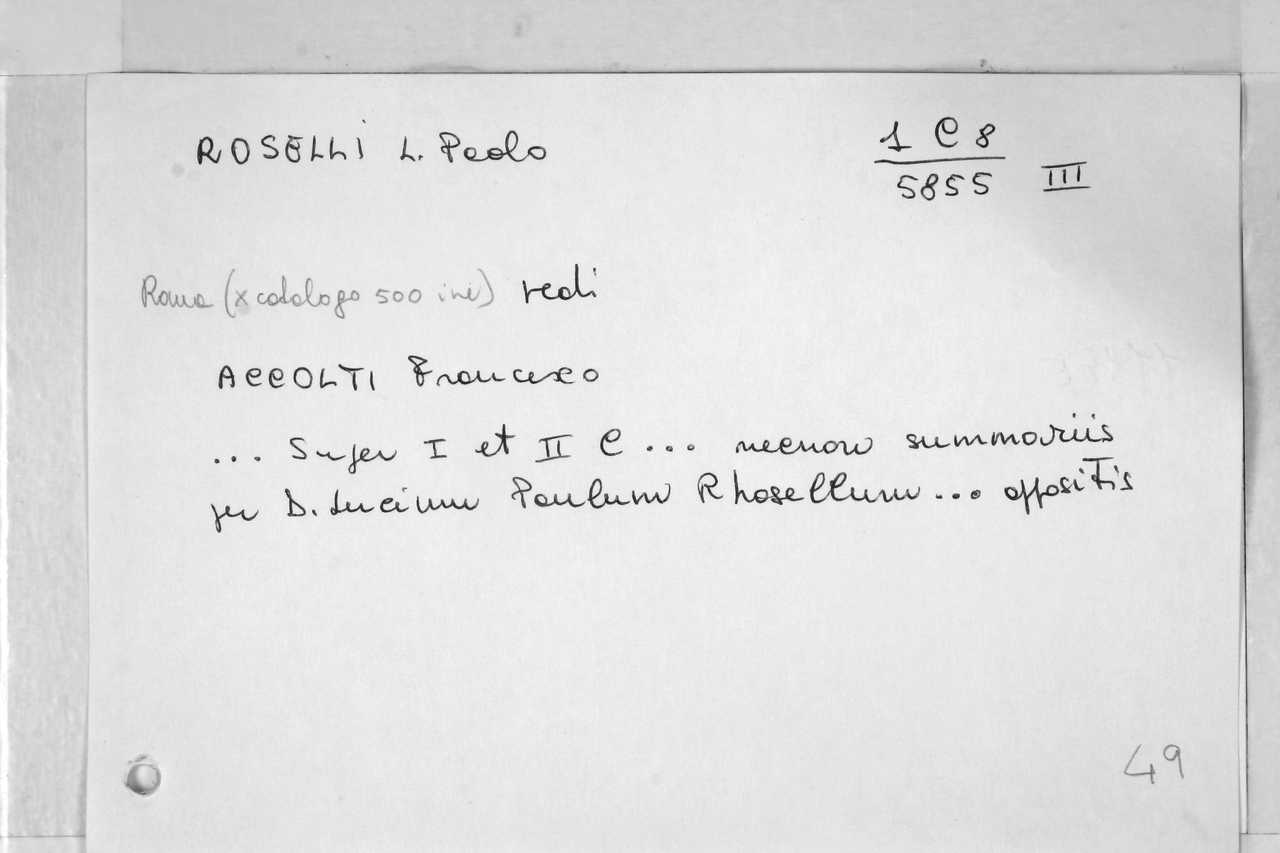 ROSELLI L. Paolo
1 C 8
5855 III
Roma (x catalogo 500 ine) vedi
ACCOLTI Francesco
... Super I et II C ... necnon summariis
per D. Lucium Paulum Rhosellum ... appositis
49